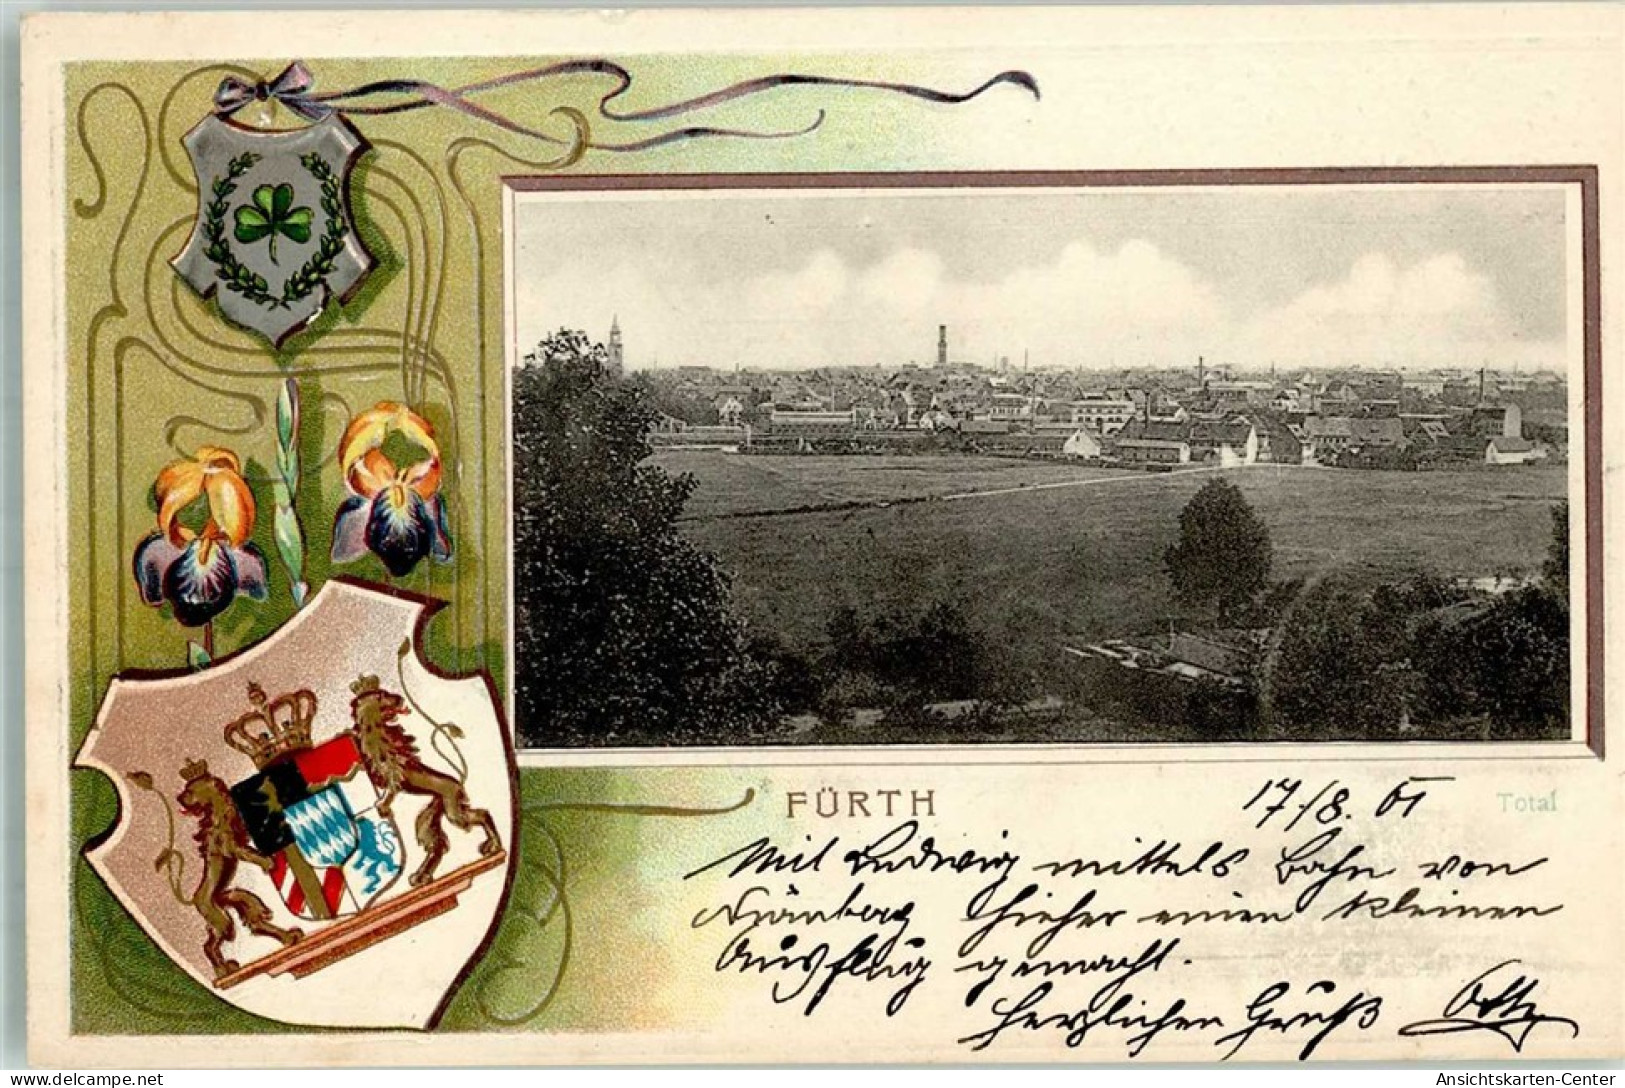 FÜRTH
17/8. 01
Total
Mit Ludwig mittels Bahn von
Nürnberg hieher einen kleinen
Ausflug gemacht.
Herzlichen Gruß Otto
delcampe.net
Ansichtskarten-Center